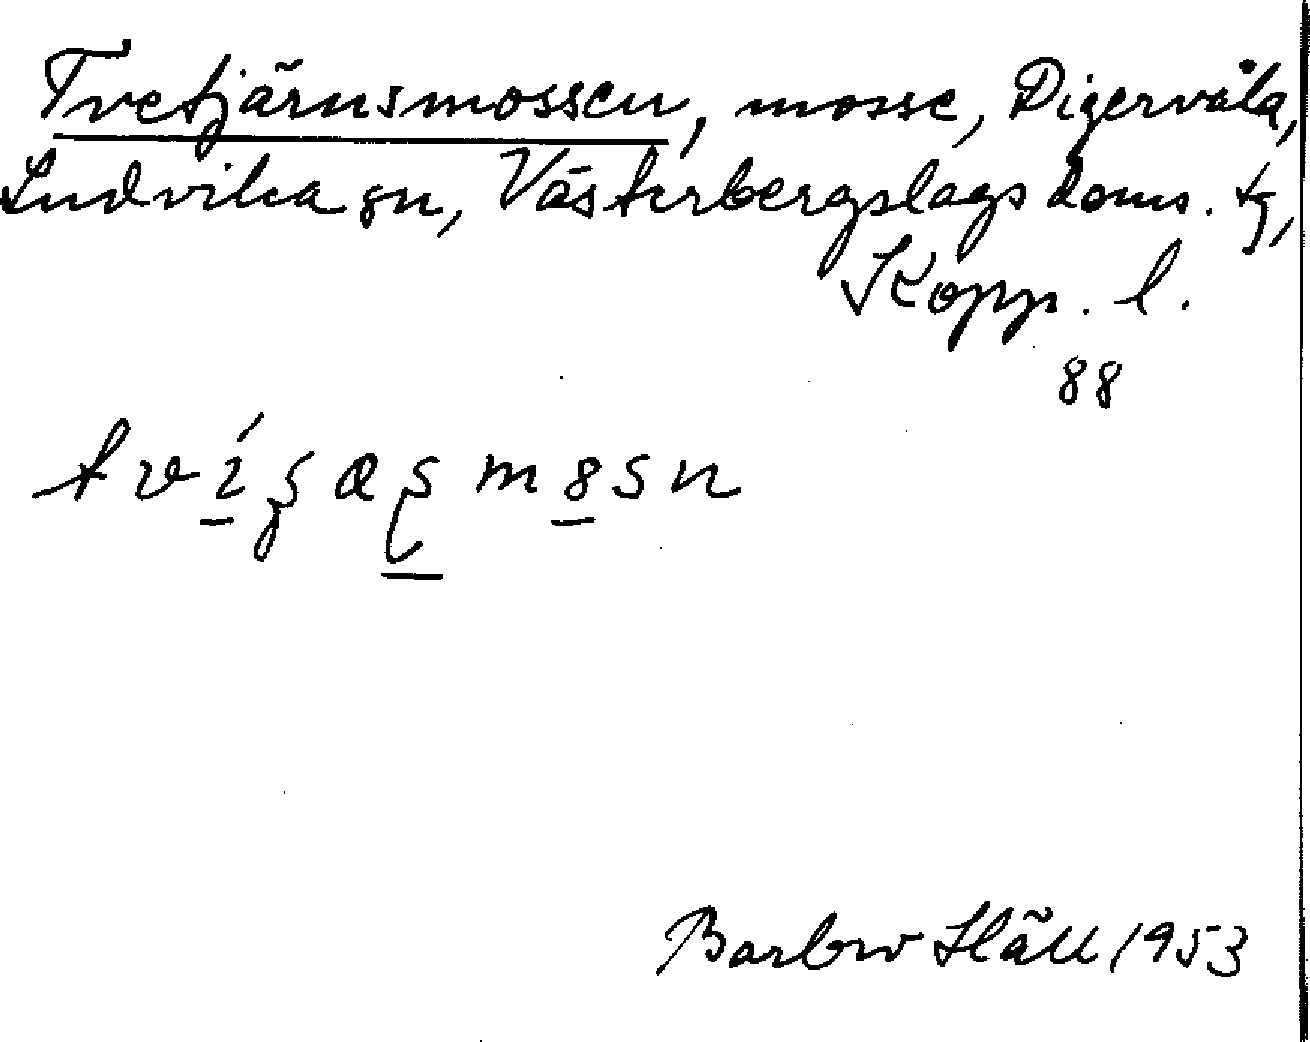 Tvetjärnsmossen, mosse, Digervåla,
Ludvika sn, Västerbergslags doms. tg,
Kopp. l.
88
Barbro Häll 1953